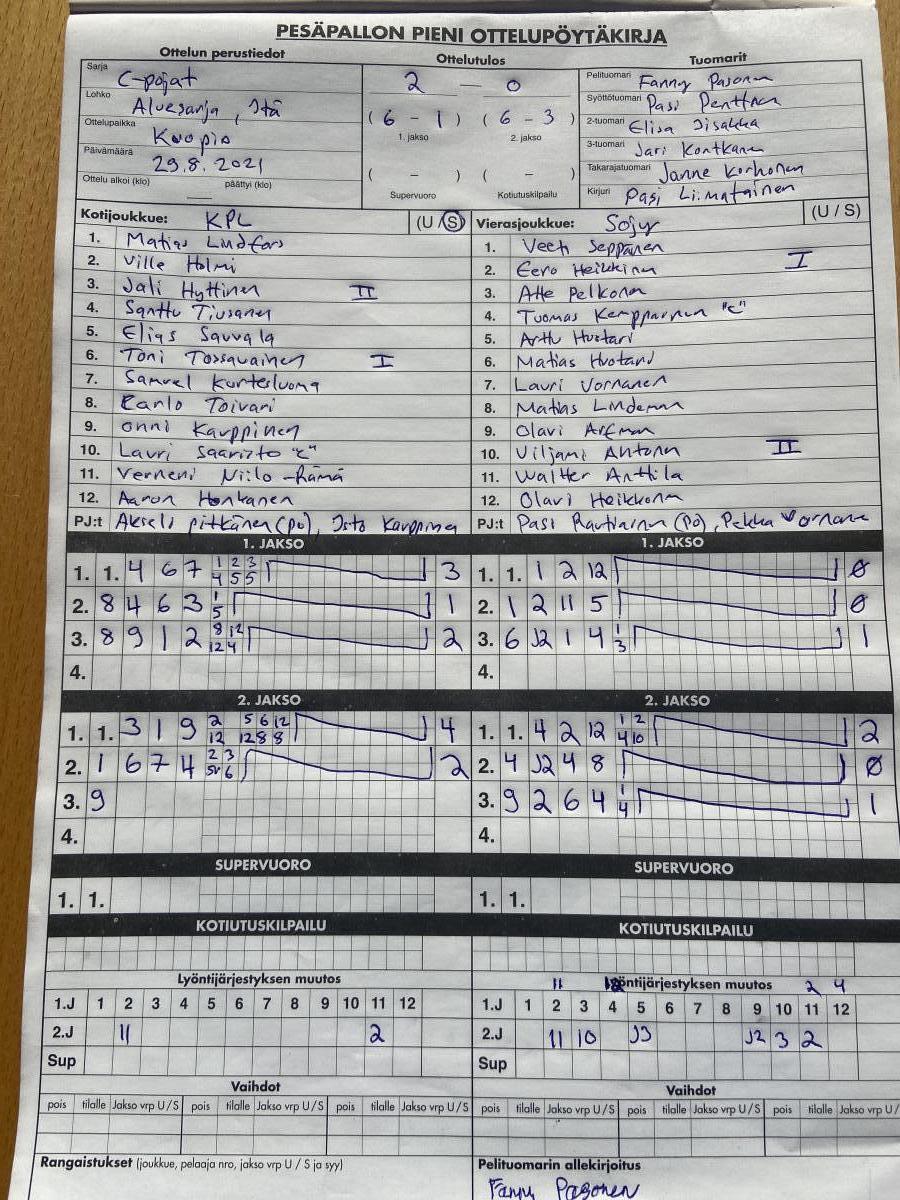 PESÄPALLON PIENI OTTELUPÖYTÄKIRJA
Ottelun perustiedot
Sarja C-pojat
Lohko Aluesarja, Itä
Ottelupaikka Kuopio
Päivämäärä 29.8.2021
Ottelu alkoi (klo) päättyi (klo)
Ottelutulos
2 — 0
( 6 - 1 ) ( 6 - 3 )
1. jakso 2. jakso
( - ) ( - )
Supervuoro Kotiutuskilpailu
Tuomarit
Pelituomari Fanny Pasonen
Syöttötuomari Pasi Penttinen
2-tuomari Elisa
3-tuomari Jari Kontkanen
Takarajatuomari Janne Korhonen
Kirjuri Pasi Liimatainen
Kotijoukkue: KPL (U / S)
1. Matias Lindfors
2. Ville Holmi
3. Jali Hyttinen II
4. Santtu Tiusanen
5. Elias Sauvala
6. Toni Tossavainen I
7. Samuel Kurtesluoma
8. Eanlo Toivari
9. Onni Kauppinen
10. Lauri Saaristo "C"
11. Verneri Niilo-Rämä
12. Aaron Honkanen
PJ:t Akseli Pitkänen (PO), Isto Kauppinen
Vierasjoukkue: Sojy (U / S)
1. Veeti Seppänen
2. Eero Heikkinen I
3. Atte Pelkonen
4. Tuomas Kemppainen "C"
5. Arttu Huotari
6. Matias Huotari
7. Lauri Vornanen
8. Matias Lindeman
9. Olavi
10. Viljami Antonen II
11. Waltter Anttila
12. Olavi Heikkonen
PJ:t Pasi Rautiainen (PO), Pekka Vornanen
1. JAKSO
1. 1. 4 6 7 1 2 3 3
4 5 5
2. 8 4 6 3 1 1
5
3. 8 9 1 2 8 12 2
12 4
4.
1. JAKSO
1. 1. 1 2 12 0
2. 1 2 11 5 0
3. 6 J2 1 4 1 1
3
4.
2. JAKSO
1. 1. 3 1 9 2 5 6 12 4
12 12 8 8
2. 1 6 7 4 2 3 2
6
3. 9
4.
2. JAKSO
1. 1. 4 2 12 1 2 2
4 10
2. 4 J2 4 8 0
3. 9 2 6 4 1 1
4
4.
SUPERVUORO
1. 1.
SUPERVUORO
1. 1.
KOTIUTUSKILPAILU
KOTIUTUSKILPAILU
Lyöntijärjestyksen muutos
1.J 1 2 3 4 5 6 7 8 9 10 11 12
2.J 11 2
Sup
11 Lyöntijärjestyksen muutos 2 4
1.J 1 2 3 4 5 6 7 8 9 10 11 12
2.J 11 10 J3 J2 3 2
Sup
Vaihdot
pois tilalle Jakso vrp U/S pois tilalle Jakso vrp U/S pois tilalle Jakso vrp U/S
Vaihdot
pois tilalle Jakso vrp U/S pois tilalle Jakso vrp U/S pois tilalle Jakso vrp U/
Rangaistukset (joukkue, pelaaja nro, jakso vrp U / S ja syy)
Pelituomarin allekirjoitus
Fanny Pasonen